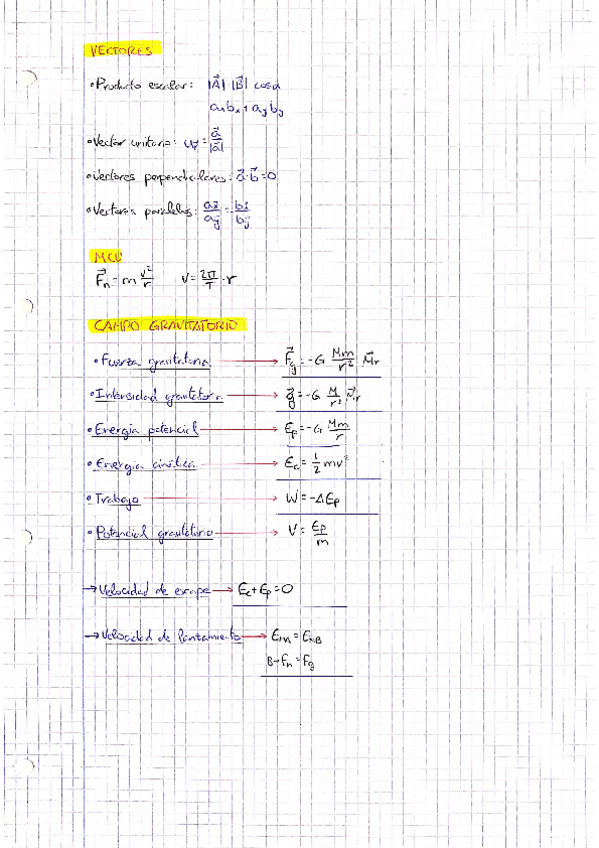 VECTORES
• Producto escalar: |A⃗| |B⃗| cosα
aₓbₓ + a_y b_y
• Vector unitario: u_v⃗ = a⃗/|a⃗|
• Vectores perpendiculares: a⃗·b⃗ = 0
• Vectores paralelos: a_i/a_j = b_i/b_j
MCU
F⃗ₙ = m v²/r V = 2π/T · r
CAMPO GRAVITATORIO
• Fuerza gravitatoria → F⃗_g = -G Mm/r² u⃗_r
• Intensidad gravitatoria → g⃗ = -G M/r² u⃗_r
• Energía potencial → E_p = -G Mm/r
• Energía cinética → E_c = 1/2 mv²
• Trabajo → W = -ΔE_p
• Potencial gravitatorio → V = E_p/m
→ Velocidad de escape → E_c + E_p = 0
→ Velocidad de lanzamiento → E_MA = E_MB
B → Fₙ = F_g